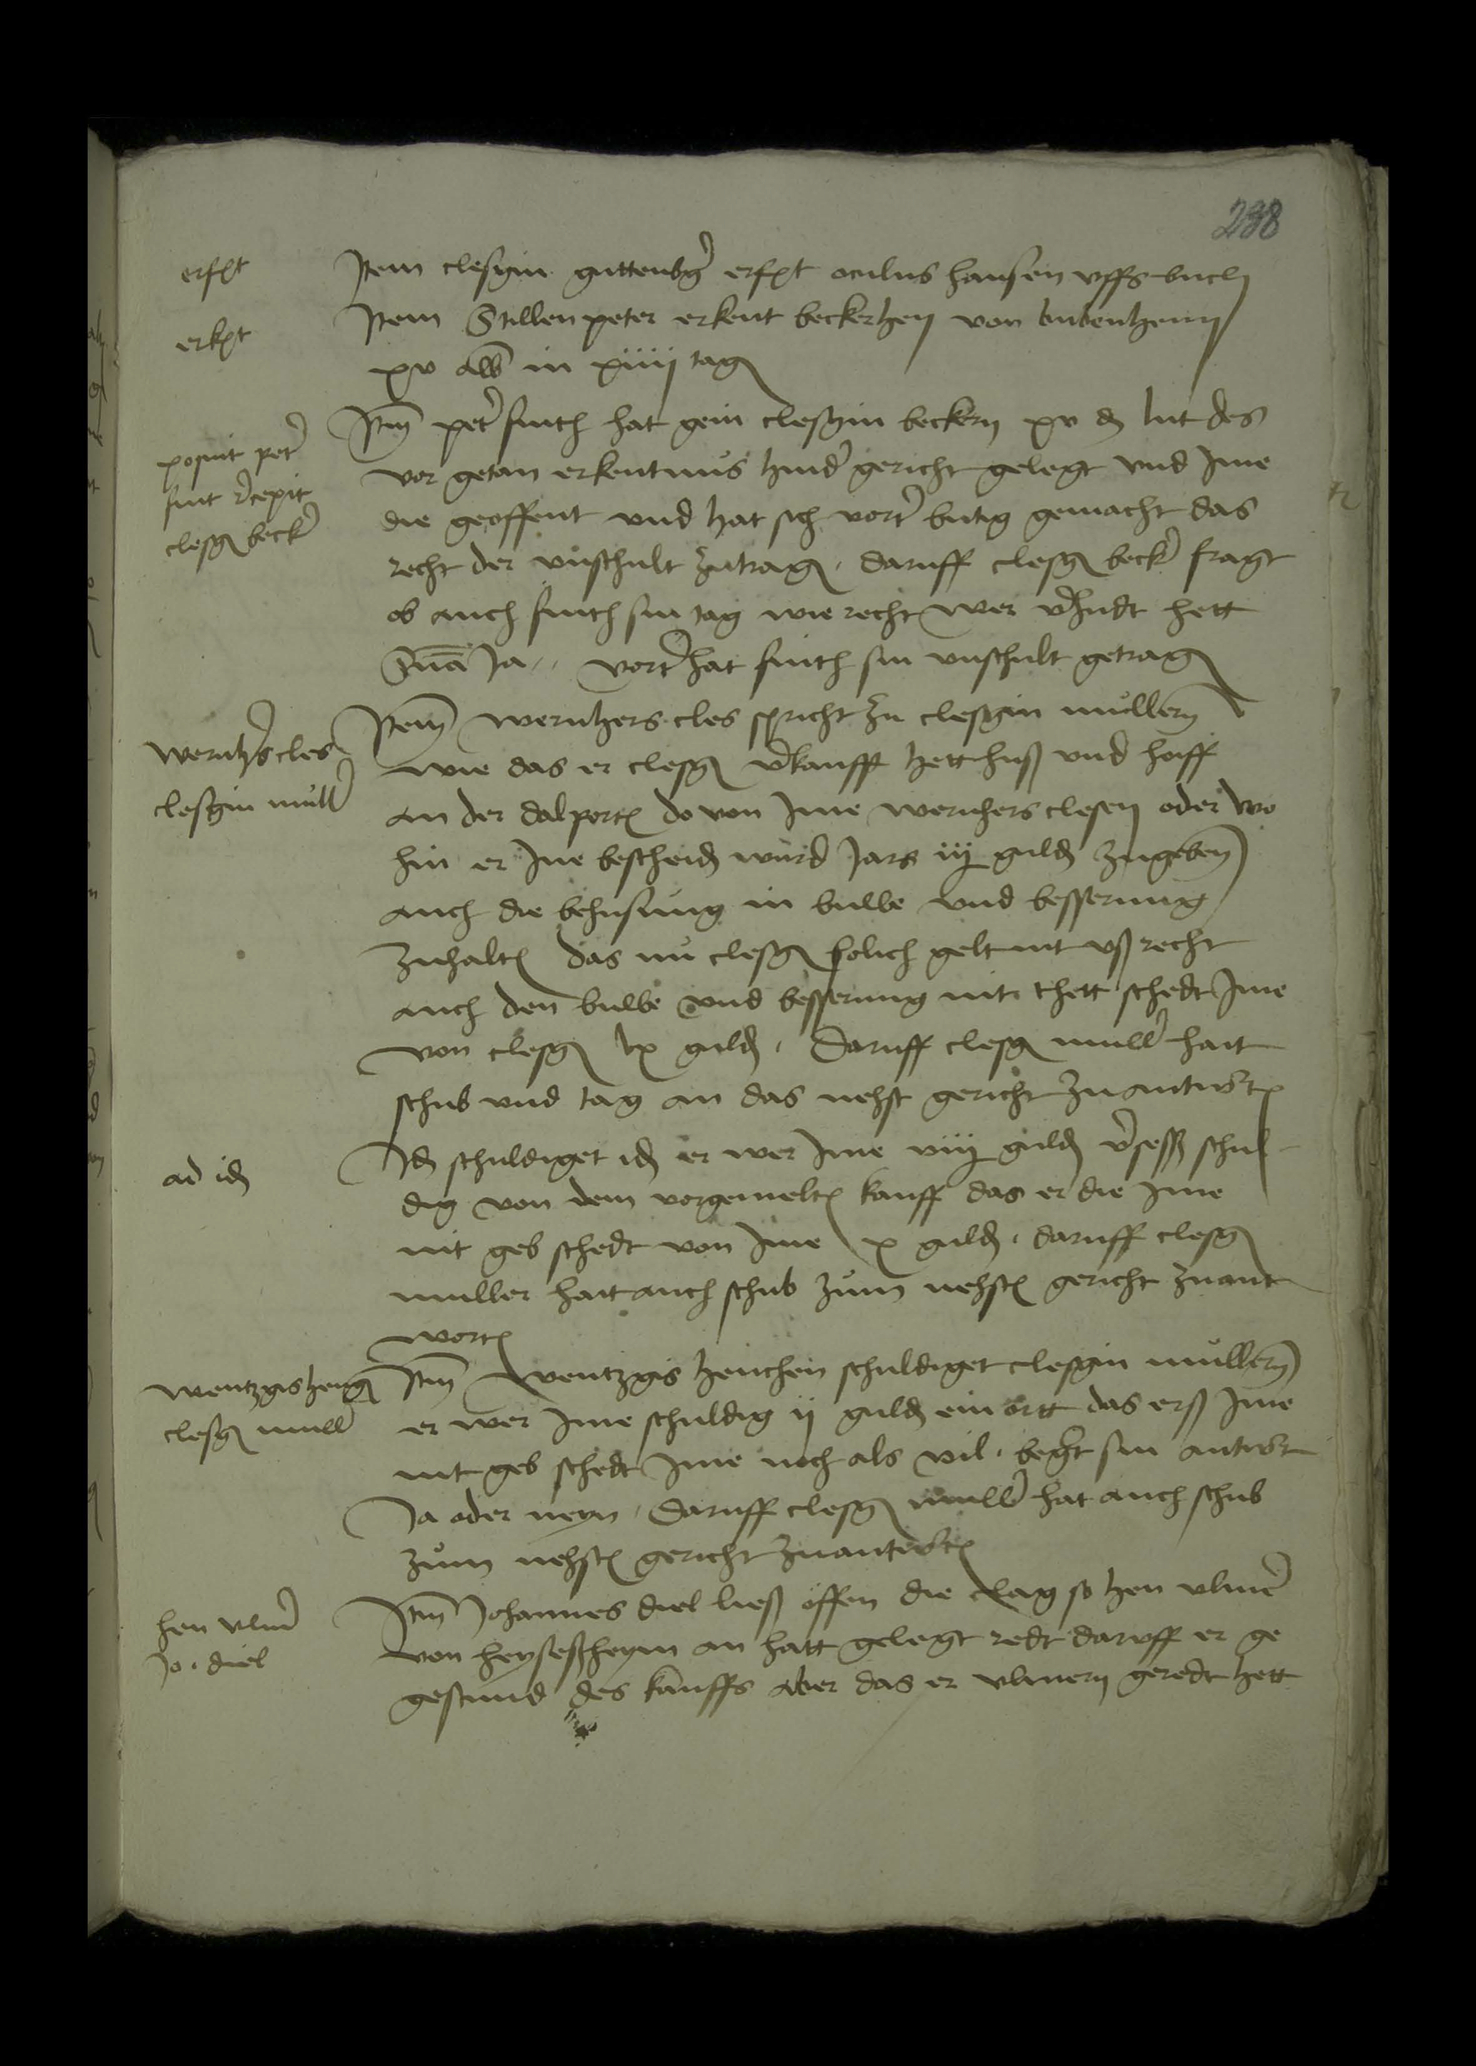 238
erfolgt
Item clesgin guttenbergern erfolgt oculus hansen uffs buch
erkent
Item Stillen peter erkent beckerhen von bubenheim
xv alb in xiiij tagen
posuit peter
finth recepit
clesgen becker
Item peter finth hat gein clesgin beckern xv d lut des
vor getan erkentnus hinder gericht gelegt und Ime
die geoffent und hat sich vorter butig gemacht das
recht der unschult zutragen. daruff clesgen becker fragt
ob auch finth sin tag wie recht wer verhudt hett
Sententia Ja .. vorter hat finth sin unschult getragen
wernhers cles
clesgin muller
Item wernhers cles spricht zu clesgin mullern
wie das er clesgen verkaufft hett huß und hoiff
an der dalporten do von Ime wernhers clesen oder wo
hin er Ine bescheiden wurd Jars iij gulden zugeben
auch die behusung in buwe und besserung
zuhalten das nu clesgen solich gelt nit ußrecht
auch den buwe und besserung nit thett schedt Ime
von clesgen lx gulden. Daruff clesgen muller hait
schub und tag an das nehst gericht zu antworten
ad idem
Idem schuldiget idem er wer Ime viij gulden verseß schul-
dig von dem vorgemelten kauff das er die Ime
nit geb schedt von Ime x gulden. daruff clesgen
muller hait auch schub zum nehsten gericht zu ant
worten
wentzgis hengen
clesgen muller
Item wentzgis henchen schuldiget clesgin mullern
er wer Ime schuldig ij gulden ein ortt das erß Ime
nit geb schedt Ime noch als vil. begert sin antwort
Ja oder neyn. Daruff clesgen muller hat auch schub
zum nehsten gericht zu antworten
hen ulmer
Jo. diel
Item Johannes diel ließ offen die clag so hen ulmer
von heyseßheym an hatt gelegt redt daruff er ge
gestund des kauffs aber das er ulmern geredt hett